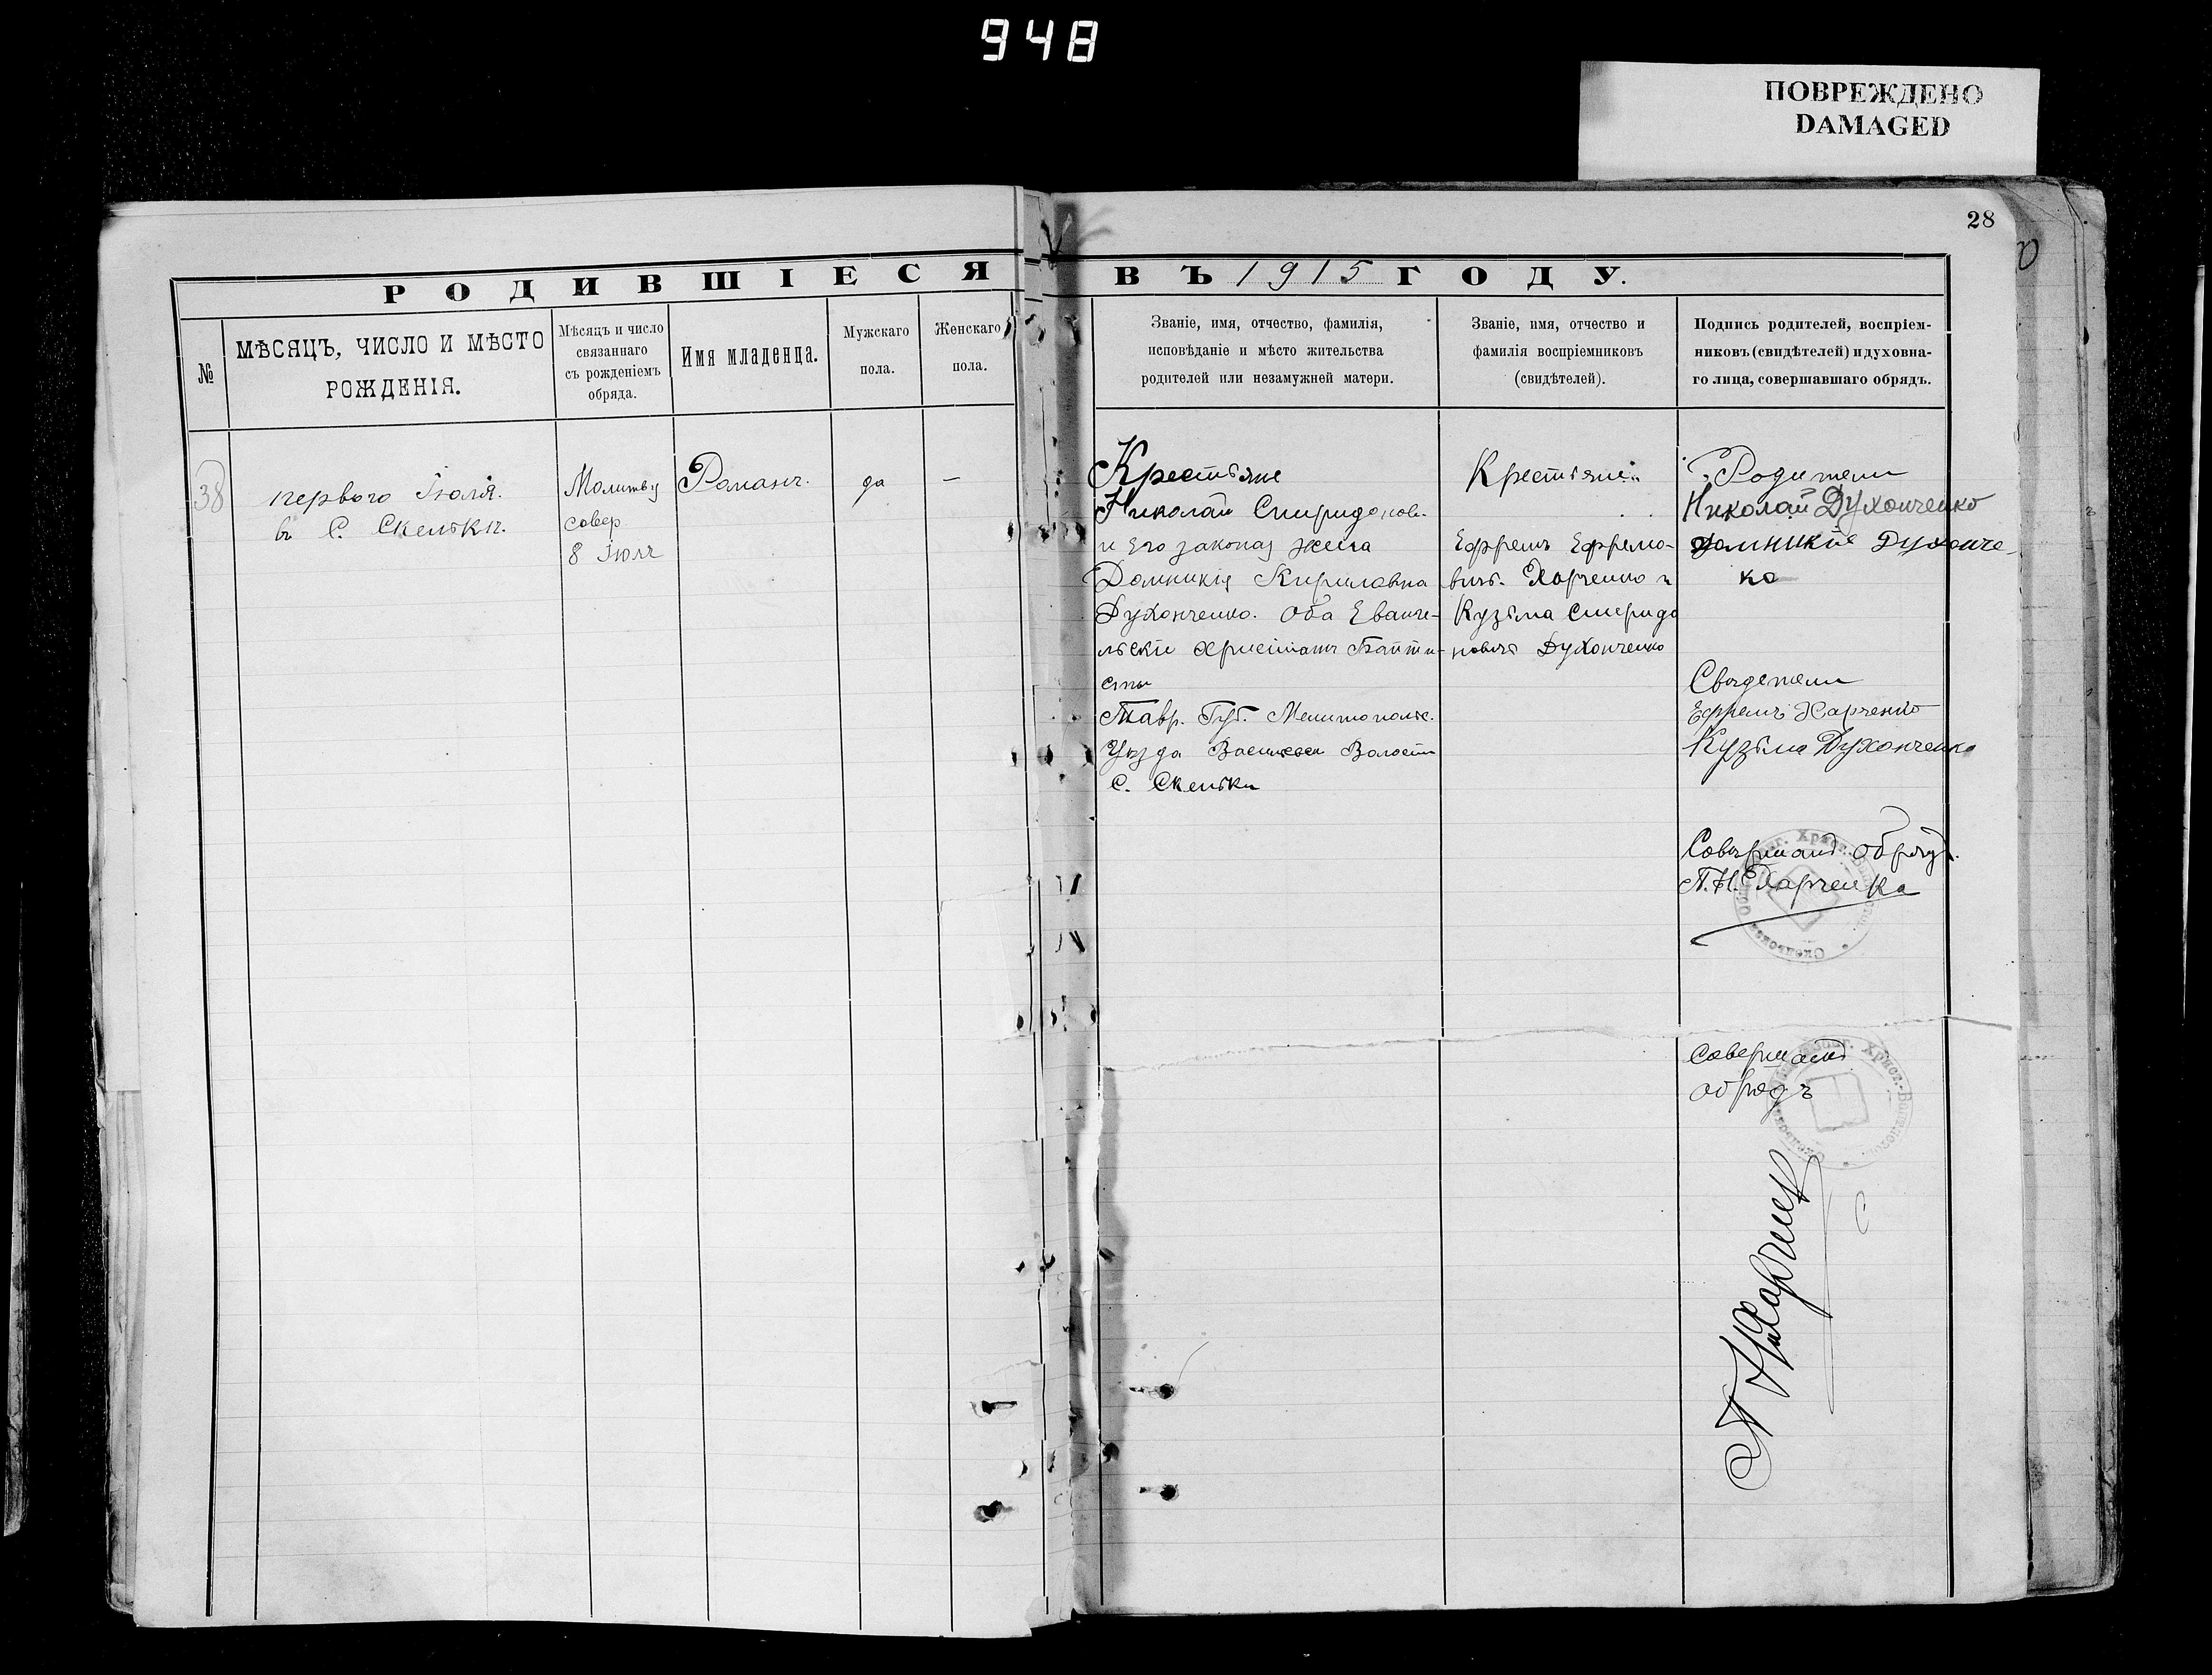 948
ПОВРЕЖДЕНО
DAMAGED
28
РОДИВШІЕСЯ ВЪ 1915 ГОДУ.
№
МѢСЯЦЪ, ЧИСЛО И МѢСТО
РОЖДЕНІЯ.
Мѣсяцъ и число
связаннаго
съ рожденіемъ
обряда.
Имя младенца.
Мужскаго
пола.
Женскаго
пола.
Званіе, имя, отчество, фамилія,
исповѣданіе и мѣсто жительства
родителей или незамужней матери.
Званіе, имя, отчество и
фамилія воспріемниковъ
(свидѣтелей).
Подпись родителей, воспріем-
никовъ (свидѣтелей) и духовна-
го лица, совершавшаго обрядъ.
38
первого Іюля.
въ С. Скельки.
Молитву
совер
8 Іюля
Романъ.
да
—
Крестьяне
Николай Спиридонов.
и Его законая жена
Домникія Кириловна
Духонченко. Оба Еванге-
льскіе христіанъ Бапти-
сты
Тавр. Губ. Мелитопольс.
Уѣзда Васильевс Волости
С. Скельки
Крестьяне
Ефремъ Ефремо-
вичъ. Харченко и
Кузьма Спиридо
новичъ Духонченко
Родители
Николай Духонченко
домникіе Духонче-
ко
Свидетели
Ефремъ Харченко
Кузьма Духонченко
Совершаю обрядъ.
П. Н. Харченка
Скельковск
Христ.
совершаю
обрядъ
Христ.
П Н Харченк